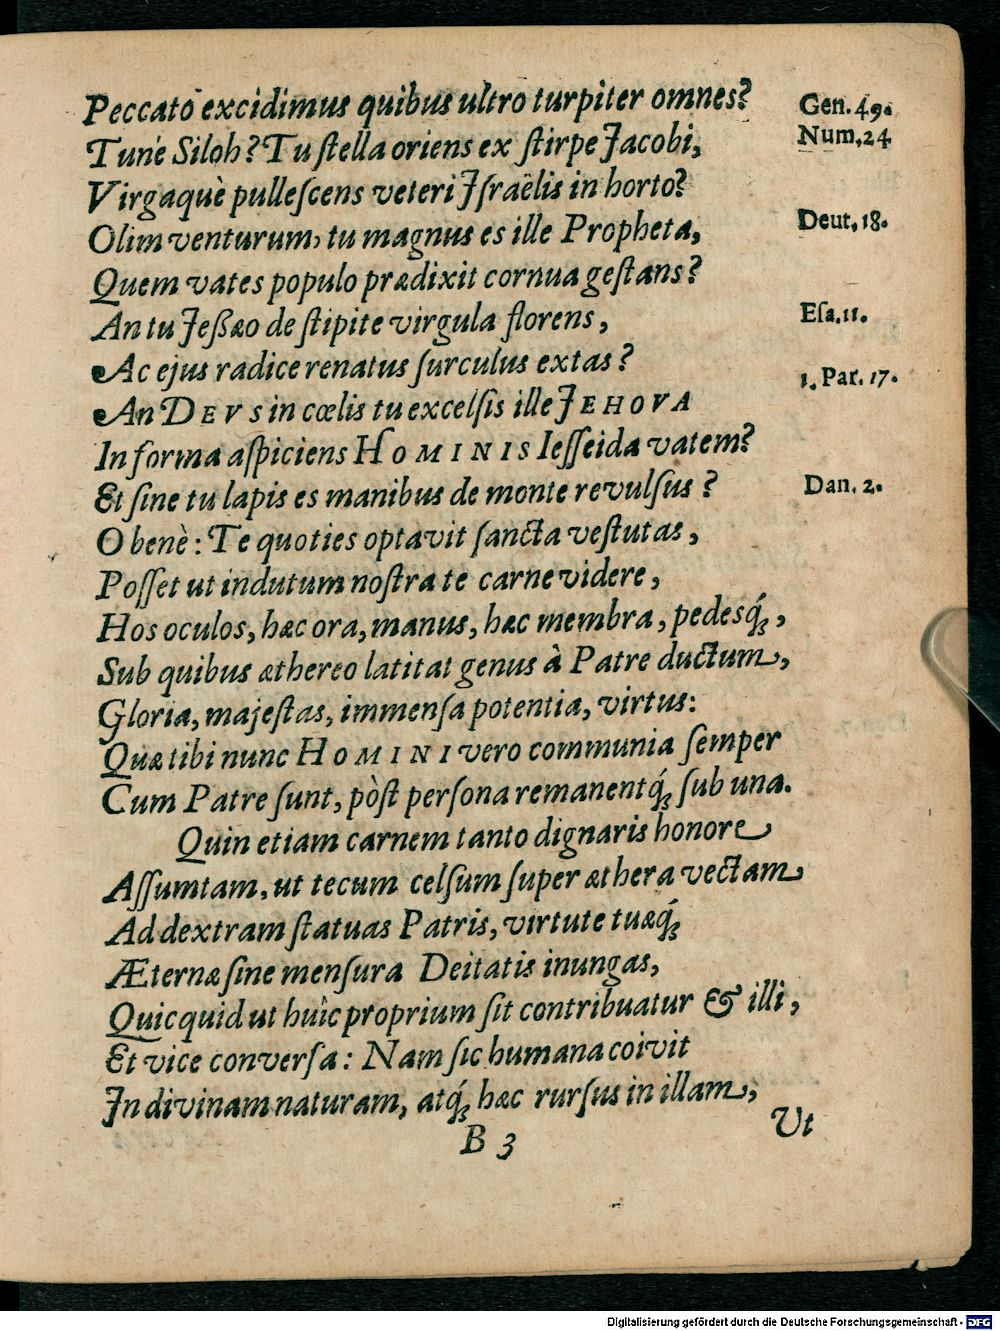 Peccato excidimus quibus ultro turpiter omnes? Gen. 49.
Tune Siloh? Tu ſtella oriens ex ſtirpe Jacobi, Num. 24
Virgaquè pulleſcens veteri Iſraëlis in horto?
Olim venturum, tu magnus es ille Propheta, Deut. 18.
Quem vates populo prædixit cornua geſtans?
An tu Jeßæo de ſtipite virgula florens, Eſa. 11.
Ac ejus radice renatus ſurculus extas?
An DEVS in cœlis tu excelſis ille JEHOVA 1. Par. 17.
In forma aſpiciens HOMINIS Ieſſeida vatem?
Et ſine tu lapis es manibus de monte revulſus? Dan. 2.
O benè: Te quoties optavit ſancta veſtutas,
Poſſet ut indutum noſtra te carne videre,
Hos oculos, hæc ora, manus, hæc membra, pedesq́;,
Sub quibus æthereo latitat genus à Patre ductum,
Gloria, majeſtas, immenſa potentia, virtus:
Quæ tibi nunc HOMINI vero communia ſemper
Cum Patre ſunt, pòſt perſona remanentq́; ſub una.
Quin etiam carnem tanto dignaris honore
Aſſumtam, ut tecum celſum ſuper æthera vectam
Ad dextram ſtatuas Patris, virtute tuæq́;
Æternæ ſine menſura Deitatis inungas,
Quicquid ut huic proprium ſit contribuatur & illi,
Et vice converſa: Nam ſic humana coivit
In divinam naturam, atq́; hæc rurſus in illam,
B 3 Vt
Digitalisierung gefördert durch die Deutsche Forschungsgemeinschaft - DFG